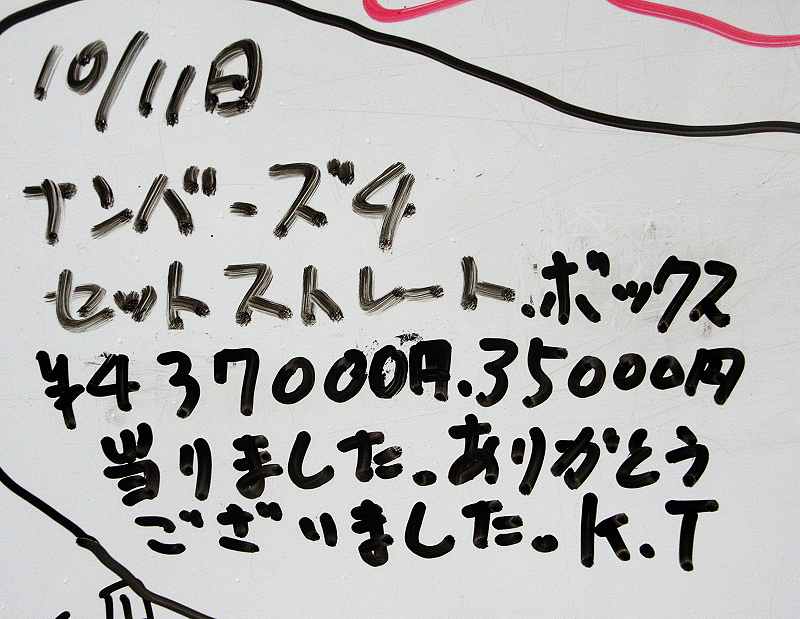 10/11日
ナンバーズ4
セットストレート.ボックス
¥437000円.35000円
当りました.ありがとう
ございました.K.T